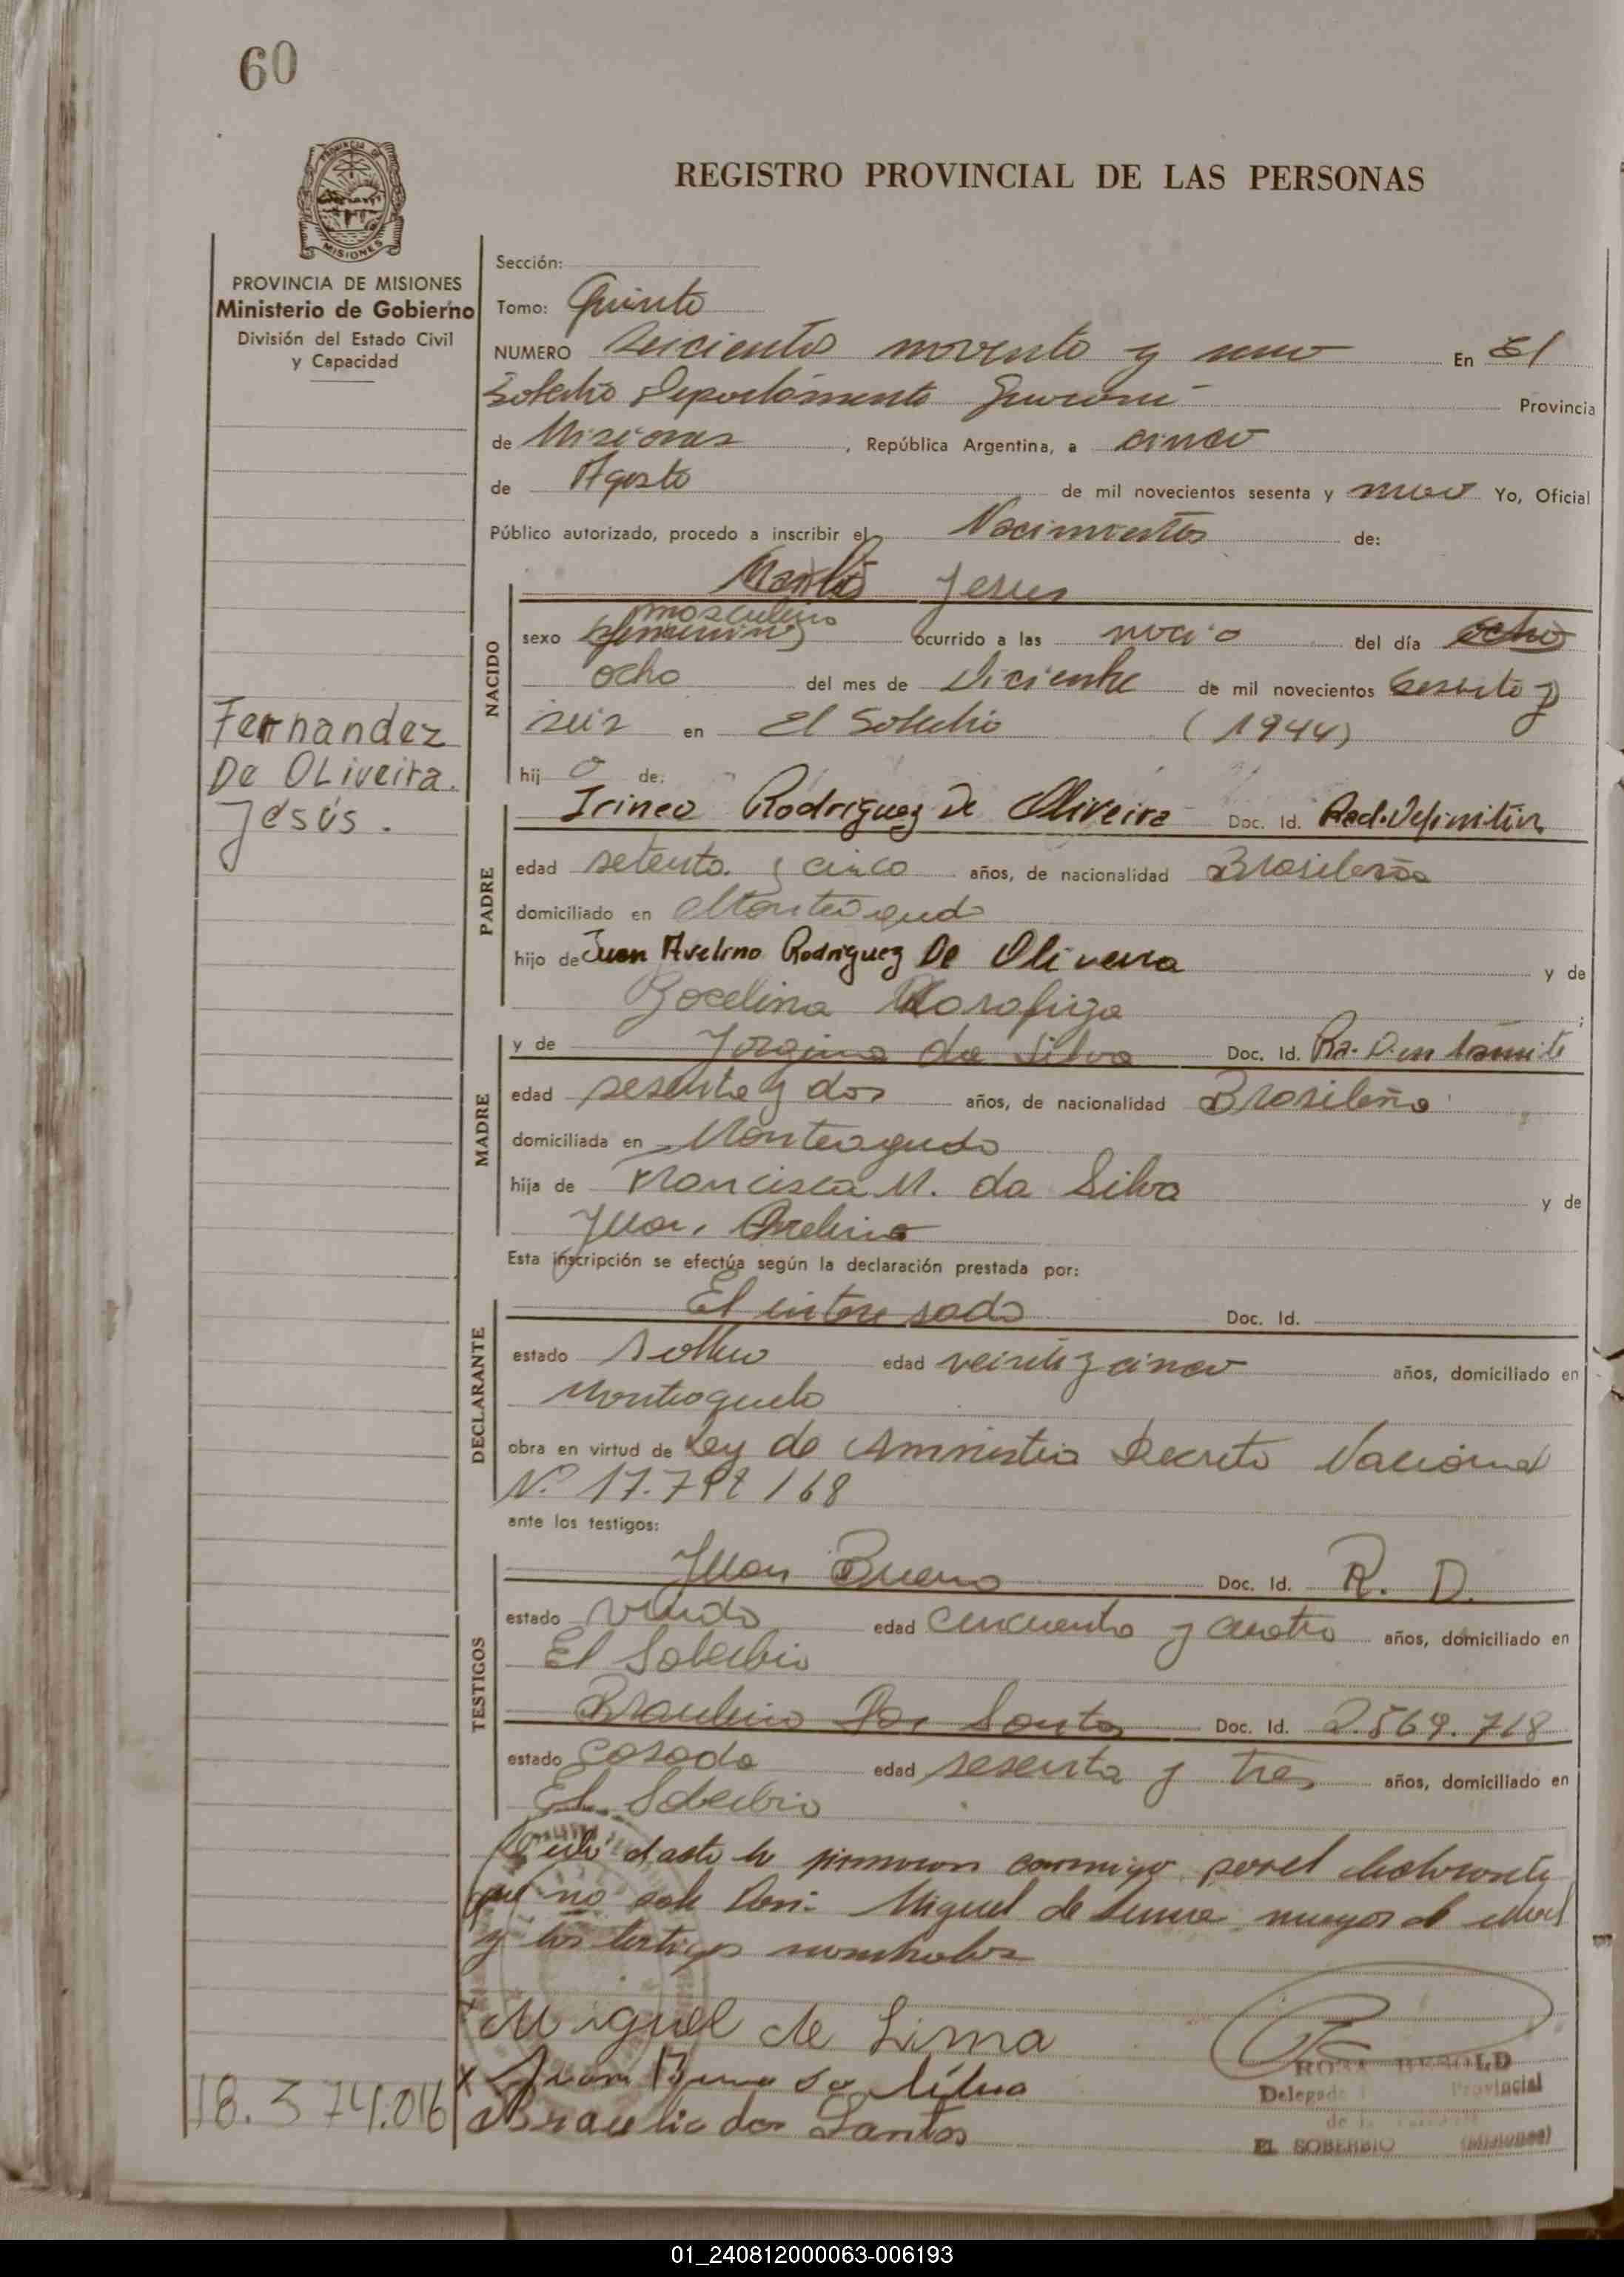 60
PROVINCIA DE
MISIONES
REGISTRO PROVINCIAL DE LAS PERSONAS
PROVINCIA DE MISIONES
Ministerio de Gobierno
División del Estado Civil
y Capacidad
Fernandez
De OLiveira.
Jesús.
18.374.016
Sección:
Tomo: Quinto
NUMERO Seiciento novento y uno En El
Soberbio Departamento Guarani Provincia
de Misiones, República Argentina, a cinco
de Agosto de mil novecientos sesenta y nueve Yo, Oficial
Público autorizado, procedo a inscribir el Nacimiento de:
Jesus
NACIDO
masculino
sexo femenino ocurrido a las del día ocho
ocho del mes de Diciembre de mil novecientos sesenta y
seis en El Soberbio (1944)
hijo de:
PADRE
Irineo Rodriguez De Oliveira Doc. Id. Rad. Definitiva
edad setenta y cinco años, de nacionalidad Brasileña
domiciliado en Monteagudo
hijo de Juan Avelino Rodriguez De Oliveira y de
Jocelina
MADRE
y de Jorgina da Silva Doc. Id. Ra. D. en tramite
edad sesenta y dos años, de nacionalidad Brasileña
domiciliada en Monteagudo
hija de Francisca M. da Silva y de
Juan
Esta inscripción se efectúa según la declaración prestada por:
DECLARANTE
El interesado Doc. Id.
estado soltero edad veinti y cinco años, domiciliado en
Monteagudo
obra en virtud de Ley de Amnistia Decreto Nacional
Nº 17.792/68
ante los testigos:
TESTIGOS
Juan Bueno Doc. Id. R. D.
estado viudo edad cincuenta y cuatro años, domiciliado en
El Soberbio
Braulino Dos Santos Doc. Id. 2.569.718
estado casado edad sesenta y tres años, domiciliado en
El Soberbio
Leido el acta la firmaron conmigo por el declarante
que no sabe Don: Miguel de Lima mayor de edad
y los testigos nombrados
Miguel de Lima
x Juan Bueno da Silva
Braulio dos Santos
ROSA
Delegada Provincial
de la
EL SOBERBIO (Misiones)
01_240812000063-006193